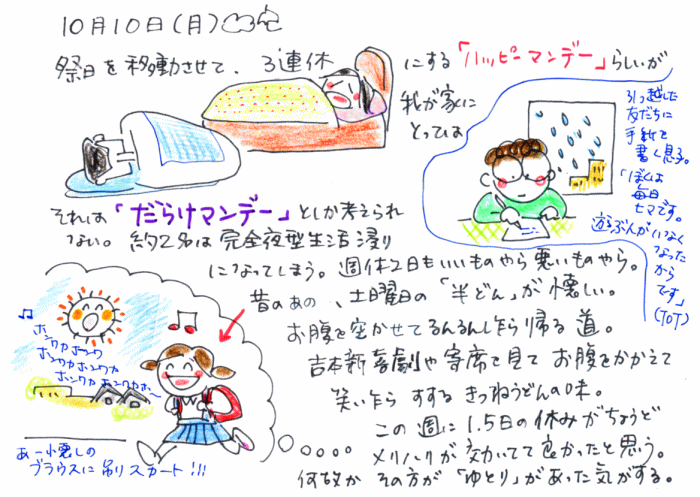 10月10日(月)
祭日を移動させて、3連休
にする「ハッピーマンデー」らしいが
我が家に
とっては
それは「だらけマンデー」としか考えられ
ない。約2名は完全夜型生活浸り
になってしまう。週休2日もいいものやら悪いものやら。
昔のあの、土曜日の「半どん」が懐しい。
お腹を空かせてるんるんし乍ら帰る道。
吉本新喜劇や寄席を見てお腹をかかえて
笑い乍らすするきつねうどんの味。
この週に1.5日の休みがちょうど
メリハリが効いてて良かったと思う。
何故かその方が「ゆとり」があった気がする。
引っ越した
友だちに
手紙を
書く息子。
「ぼくは
毎日
ヒマです。
遊ぶ人がいなく
なった
から
です」
(ToT)
ホンワカホンワカ
ホンワカホンワカ
ホンワカホンワカホ〜
あー小悪しの
ブラウスに吊りスカート!!!